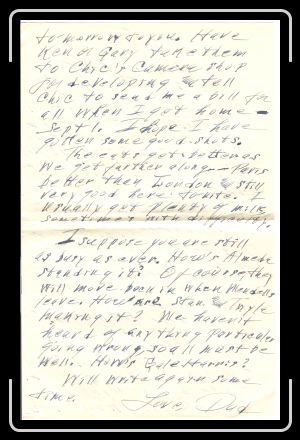 tomorrow to you. Have
Ken or Gary take them
to Chic's Camera shop
for developing & tell
Chic to send me a bill for
all when I get home —
Sept 1. I hope I have
gotten some good shots.
The eats got better as
we got farther along — Paris
better than London & still
very good here tonite. I
usually get plenty of milk,
sometimes with difficulty.
I suppose you are still
as busy as ever. How's Almeda
standing it? Of course, they
will move back in when Wendells
leave. How are Stan &
making it? We haven't
heard of anything particular
going wrong, so all must be
well. How's Harris?
Will write again some
time. Love, Dad